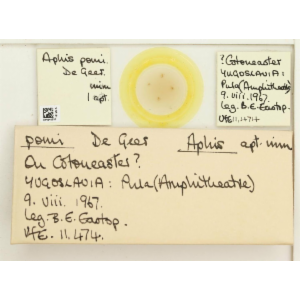 Aphis pomi.
De Geer.
imm
1 apt.
?Cotoneaster
YUGOSLAVIA:
Pula (Amphitheatre)
9. viii. 1967.
Leg. B.E. Eastop.
11,474
pomi De Geer Aphis apt. imm
On Cotoneaster?
YUGOSLAVIA: Pula (Amphitheatre)
9. viii. 1967.
Leg. B. E. Eastop.
11.474.